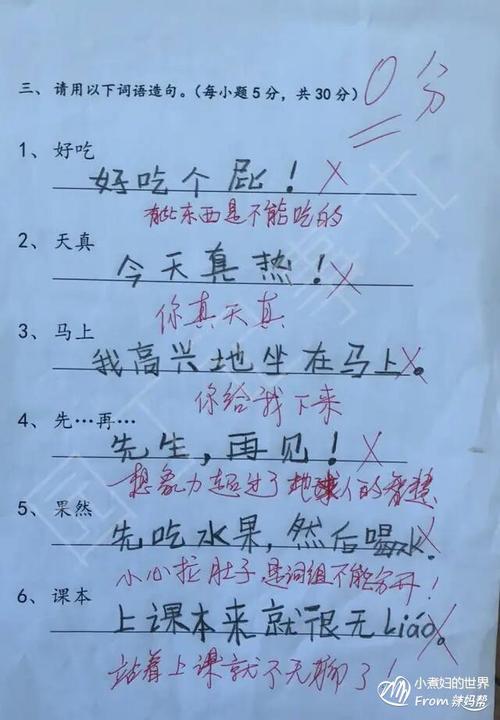 三、请用以下词语造句。(每小题5分，共30分)
0分
1、好吃
好吃个屁！
有些东西是不能吃的
2、天真
今天真热！
你真天真
3、马上
我高兴地坐在马上。
你给我下来
4、先…再…
先生，再见！
想象力超过了地球人的智慧
5、果然
先吃水果，然后喝水.
小心拉肚子,是词组不能分开！
6、课本
上课本来就很无liáo。
站着上课就不无聊了！
小煮妇的世界
From 辣妈帮